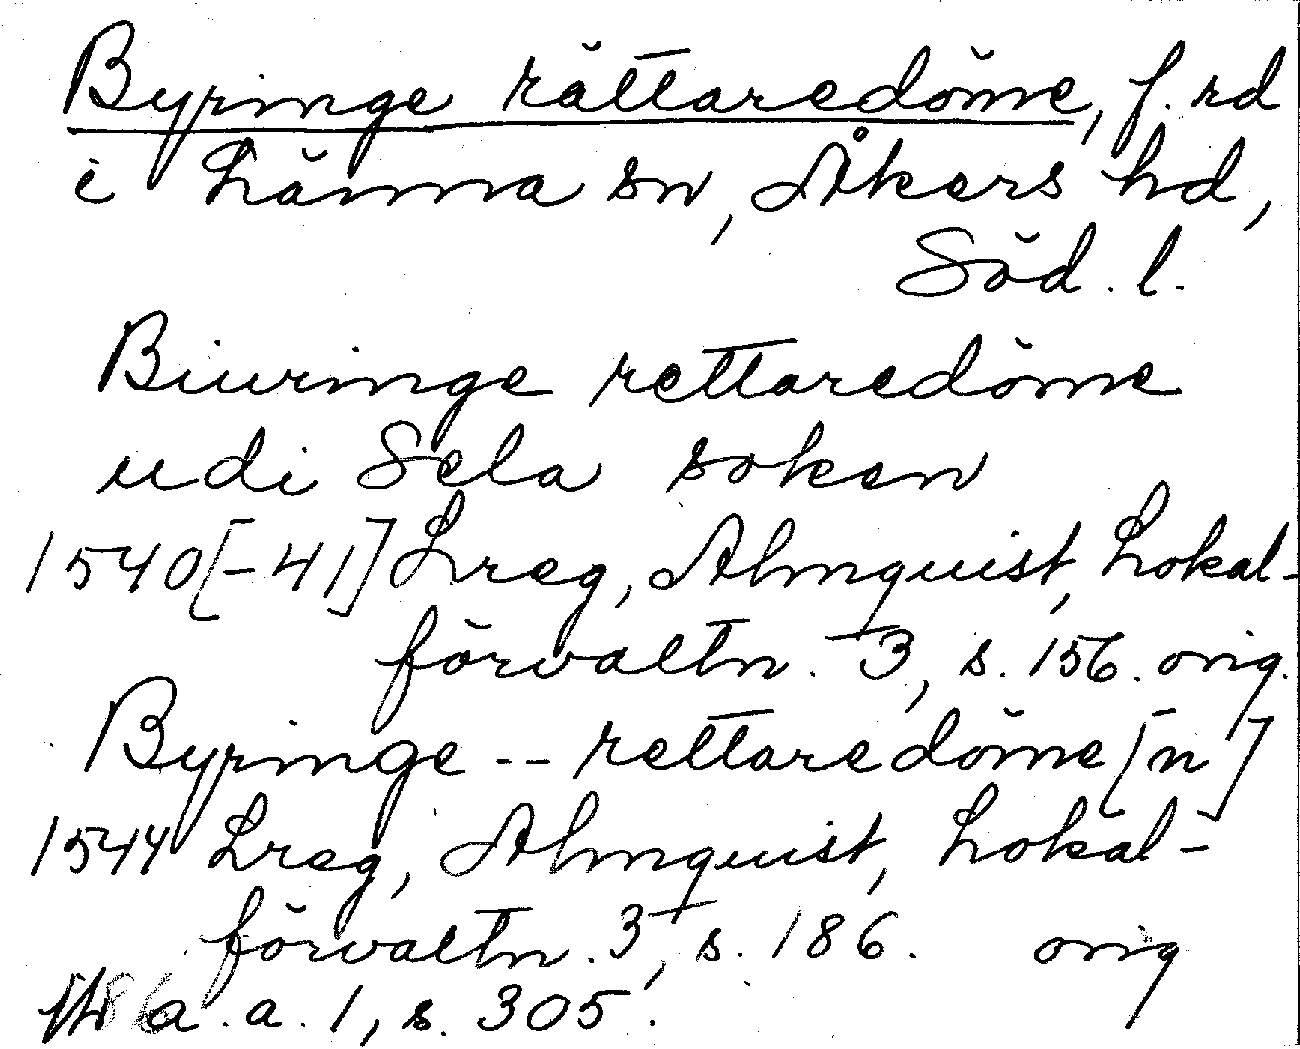 Byringe rättaredöme, f. rd
i Länna sn, Åkers hd,
Söd. l.
Biuringe rettaredöme
udi Sela soken
1540[-41] Lreg, Almquist, Lokal-
förvaltn. 3, s. 156. orig.
Byringe -- rettaredöme[n]
1544 Lreg, Almquist, Lokal-
förvaltn. 3, s. 186. orig
a. a. 1, s. 305.